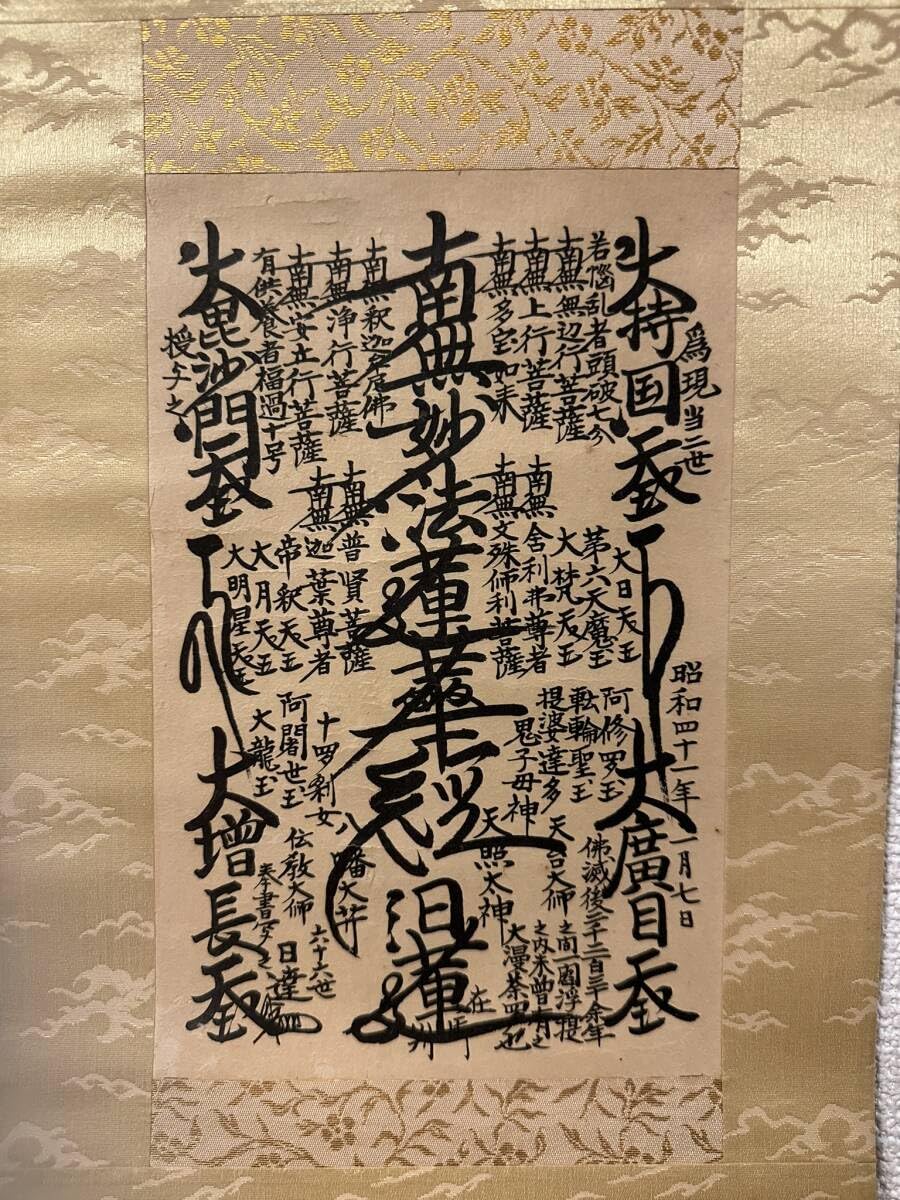 為現当二世
昭和四十一年一月七日
大持国天王
大廣目天王
若悩乱者頭破七分
南無無辺行菩薩
南無上行菩薩
南無多宝如来
南無妙法蓮華経
日蓮
在御判
南無釈迦牟尼佛
南無浄行菩薩
南無安立行菩薩
有供養者福過十号
大毘沙門天王
授与之
大日天王
第六天魔王
大梵天王
南無舎利弗尊者
南無文殊師利菩薩
南無普賢菩薩
南無迦葉尊者
帝釈天王
大月天王
大明星天王
阿修罗王
転輪聖王
提婆達多
鬼子母神
十罗刹女
阿闍世王
大龍王
佛滅後二千二百三十余年
之間一閻浮提
之内未曽有之
大漫荼罗也
天台大师
天照太神
八幡大菩薩
伝教大师
奉書写之
六十六世
日達
大増長天王